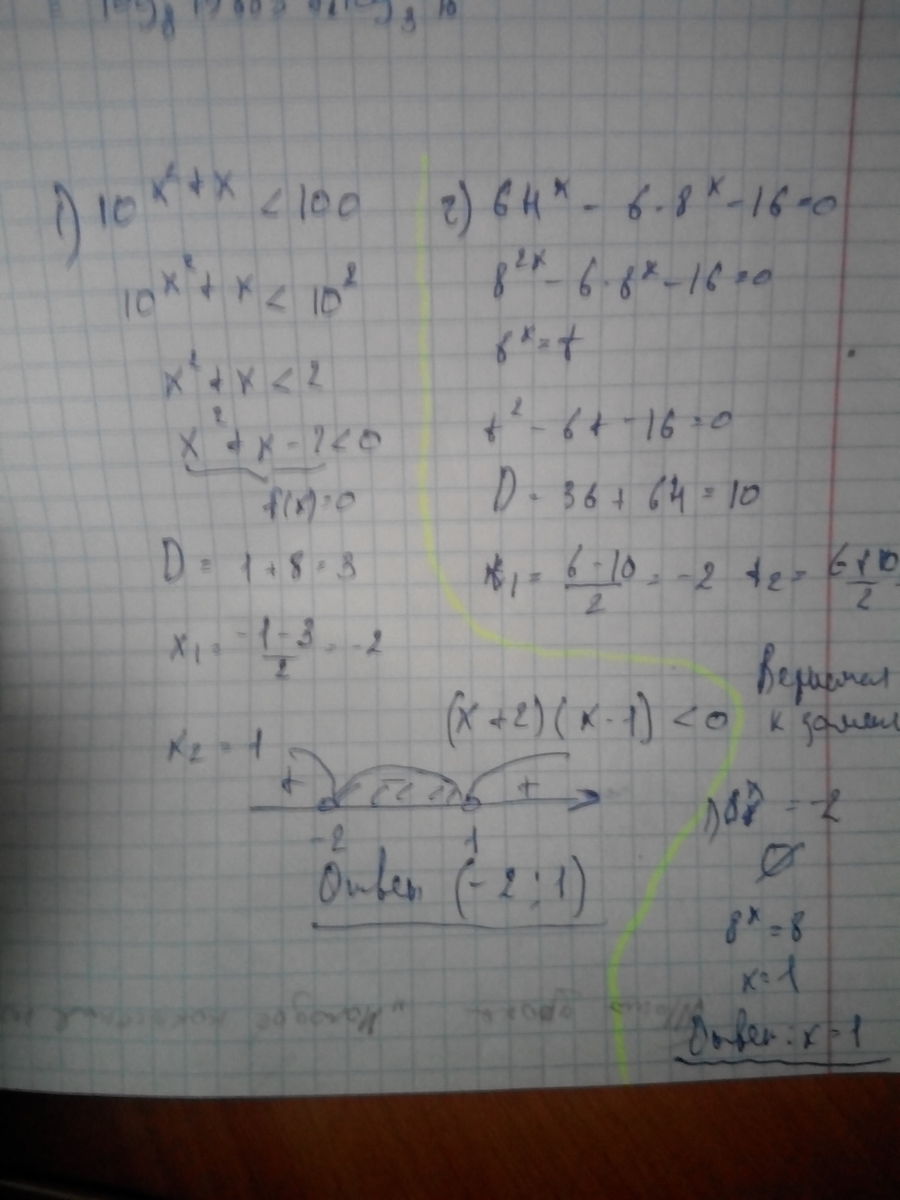 1) 10^(x²+x) < 100
10^(x²+x) < 10²
x² + x < 2
x² + x - 2 < 0
f(x) = 0
D = 1 + 8 = 3
x₁ = (-1-3)/2 = -2
x₂ = 1
(x+2)(x-1) < 0
+ +
-2 1
Ответ (-2;1)
2) 64^x - 6·8^x - 16 = 0
8^(2x) - 6·8^x - 16 = 0
8^x = t
t² - 6t - 16 = 0
D = 36 + 64 = 10
t₁ = (6-10)/2 = -2 t₂ = (6+10)/2
к
1) 8^x = -2
∅
8^x = 8
x = 1
Ответ: x = 1